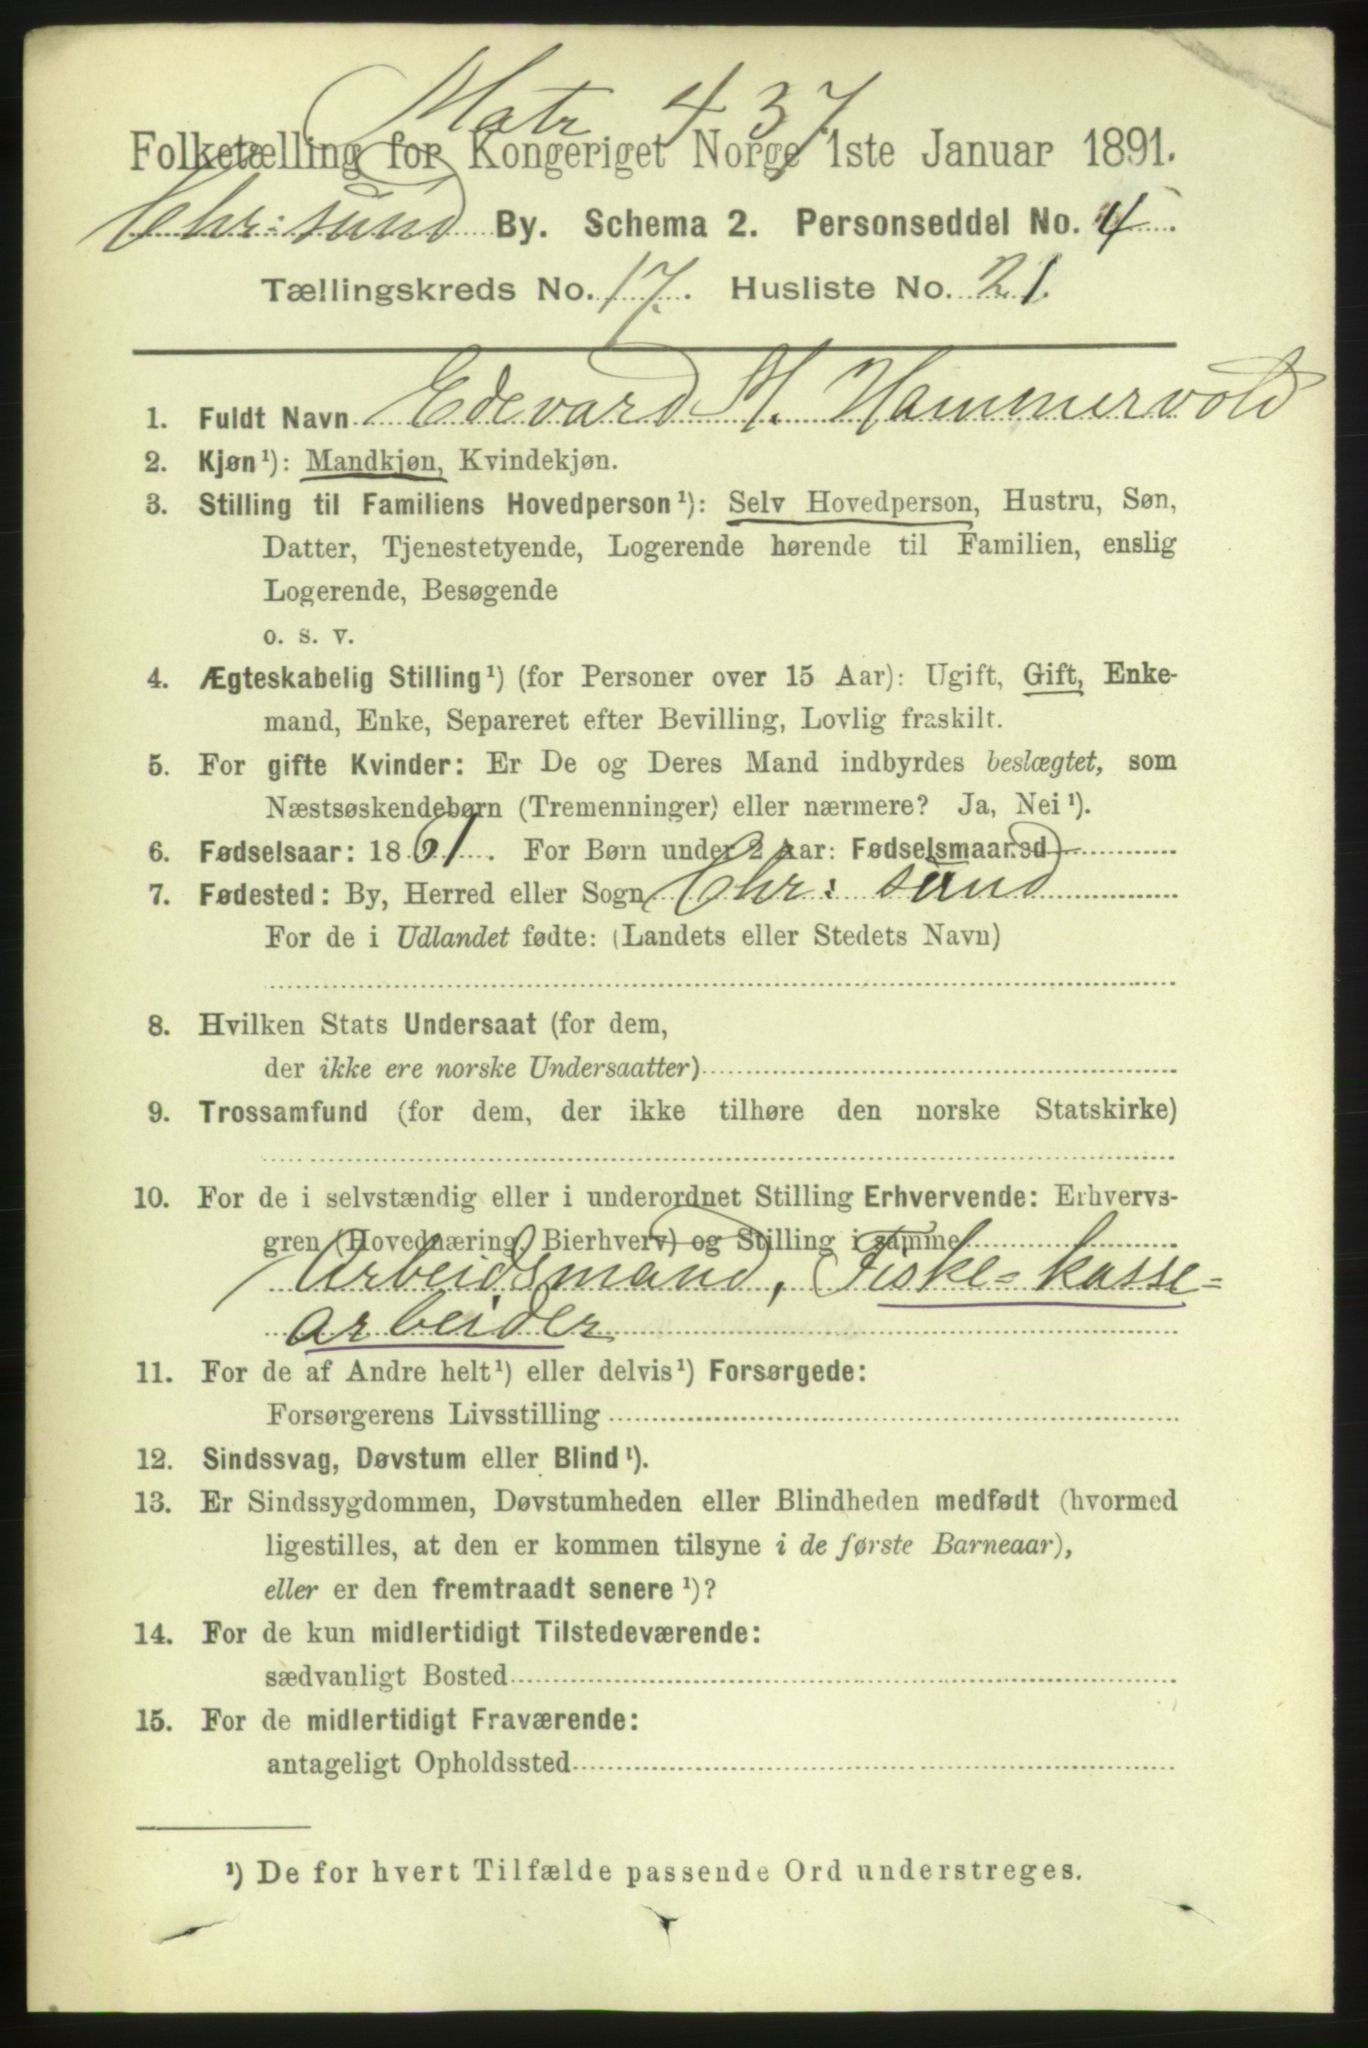 Matr 437
Folketælling for Kongeriget Norge 1ste Januar 1891.
Chr: sund By. Schema 2. Personseddel No. 4.
Tællingskreds No. 17. Husliste No. 21.
1. Fuldt Navn Edevard M. Hammervold
2. Kjøn¹): Mandkjøn, Kvindekjøn.
3. Stilling til Familiens Hovedperson¹): Selv Hovedperson, Hustru, Søn,
Datter, Tjenestetyende, Logerende hørende til Familien, enslig
Logerende, Besøgende
o. s. v.
4. Ægteskabelig Stilling¹) (for Personer over 15 Aar): Ugift, Gift, Enke-
mand, Enke, Separeret efter Bevilling, Lovlig fraskilt.
5. For gifte Kvinder: Er De og Deres Mand indbyrdes beslægtet, som
Næstsøskendebørn (Tremenninger) eller nærmere? Ja, Nei¹).
6. Fødselsaar: 1861. For Børn under 2 Aar: Fødselsmaaned
7. Fødested: By, Herred eller Sogn Chr: sund
For de i Udlandet fødte: (Landets eller Stedets Navn)
8. Hvilken Stats Undersaat (for dem,
der ikke ere norske Undersaatter)
9. Trossamfund (for dem, der ikke tilhøre den norske Statskirke)
10. For de i selvstændig eller i underordnet Stilling Erhvervende: Erhvervs-
gren (Hovednæring, Bierhverv) og Stilling i samme
Arbeidsmand, Fiske=kasse=
arbeider
11. For de af Andre helt¹) eller delvis¹) Forsørgede:
Forsørgerens Livsstilling
12. Sindssvag, Døvstum eller Blind¹).
13. Er Sindssygdommen, Døvstumheden eller Blindheden medfødt (hvormed
ligestilles, at den er kommen tilsyne i de første Barneaar),
eller er den fremtraadt senere¹)?
14. For de kun midlertidigt Tilstedeværende:
sædvanligt Bosted
15. For de midlertidigt Fraværende:
antageligt Opholdssted
¹) De for hvert Tilfælde passende Ord understreges.